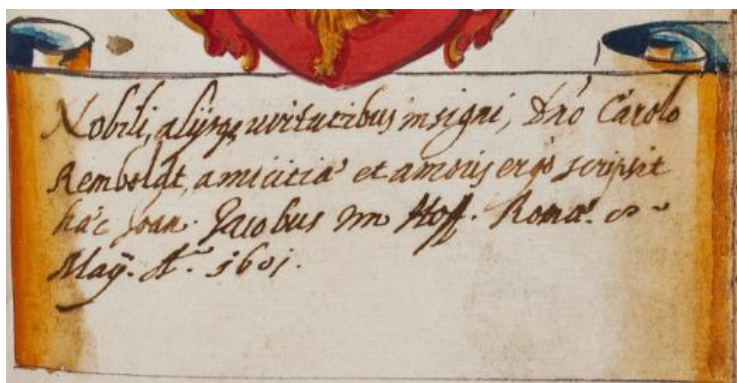 Nobili, alijsq uirtutibus insigni, Dño Carolo
Remboldt, amicitiæ et amoris ergò scripsit
hæc Joan. Jacobus im Hoff. Romæ.
Maÿ. Aº. 1601.